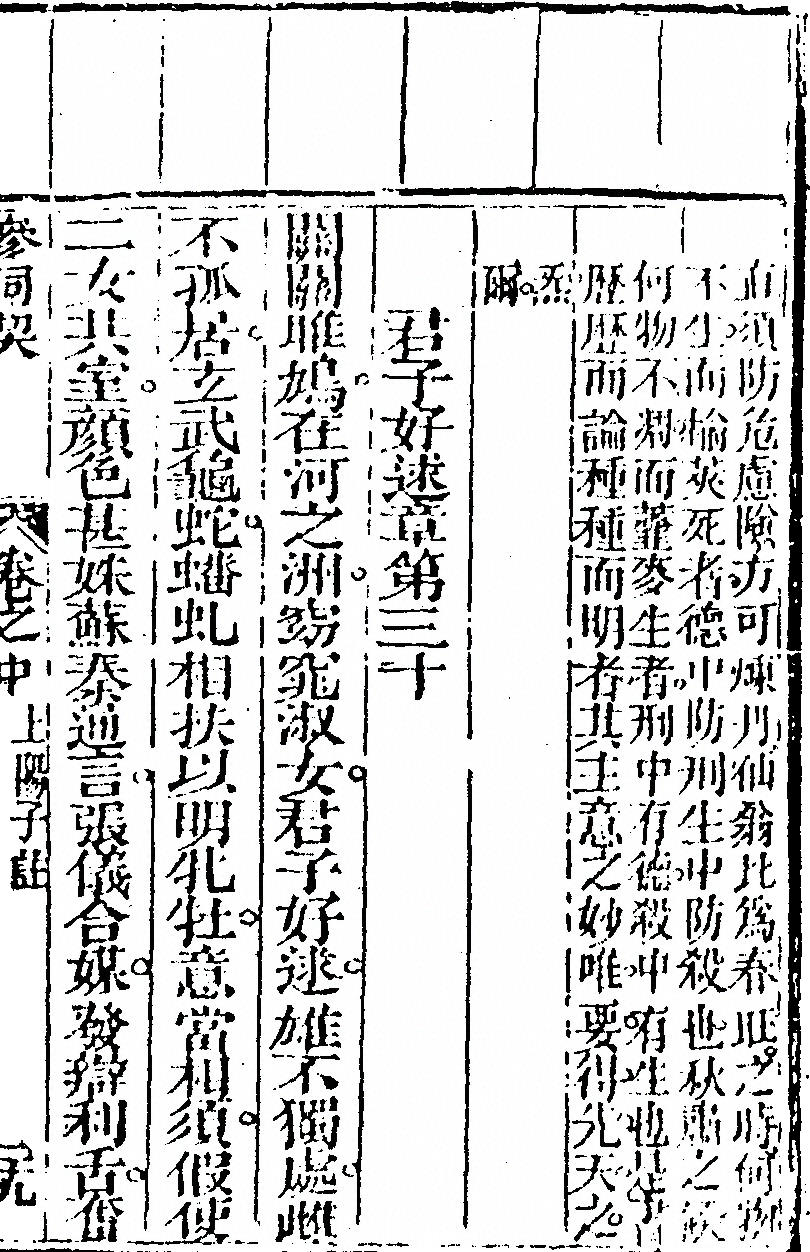 而須防危慮險方可煉丹仙翁比爲春旺之時何物
不生而榆莢死者德中防刑生中防殺也秋
何物不凋而薺麥生者刑中有德殺中有生也
歷歷而論種種而明者其主意之妙唯要得先天之
炁
爾
君子好逑章第三十
關關雎鳩在河之洲窈窕淑女君子好逑雄不獨處雌
不孤居玄武龜蛇蟠虬相扶以明牝牡意當相須假使
二女共室顏色甚姝蘇秦通言張儀合媒發辯利舌奮
參同契 卷之中 上陽子註